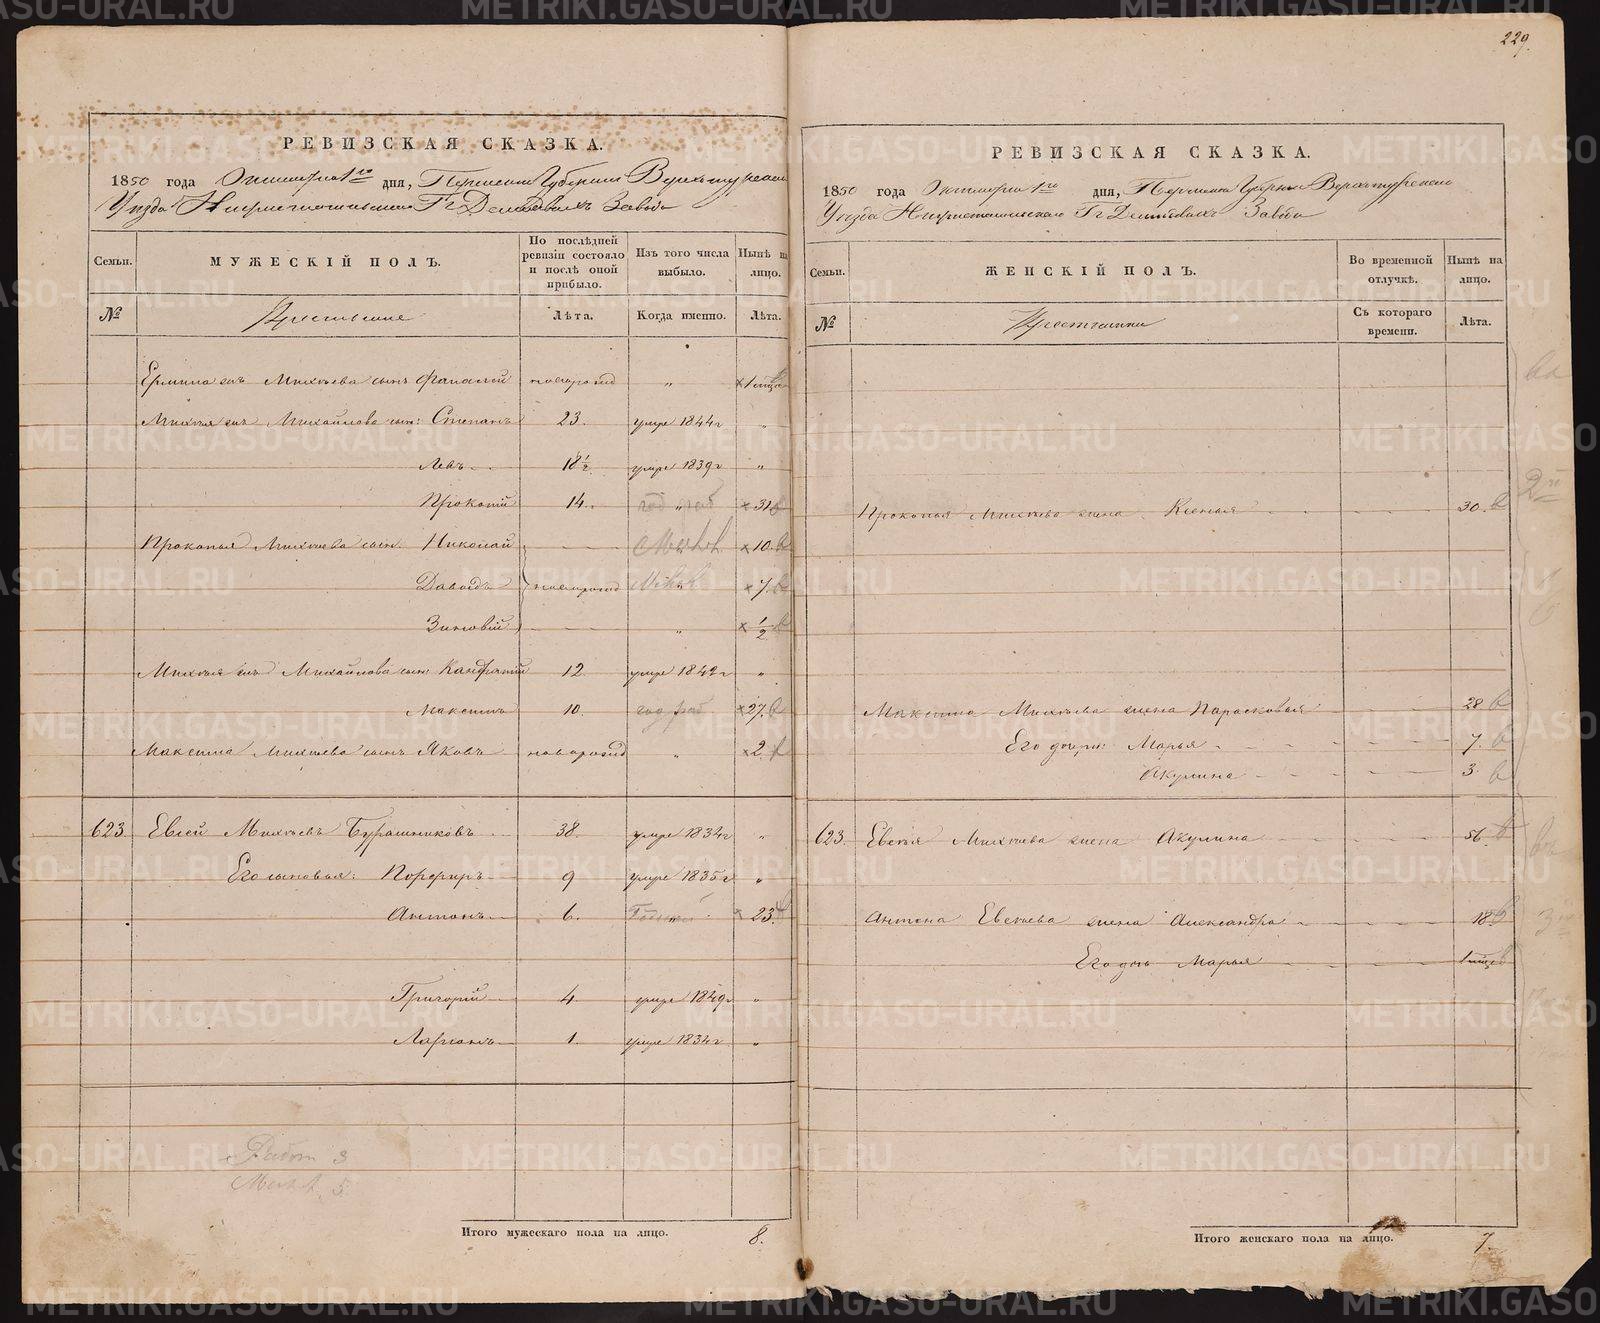 229.
РЕВИЗСКАЯ СКАЗКА.
1850 года Октября 1го дня, Пермской Губернии Верхотурскаго
Уезда Нижнетагильскаго Гг Демидовыхъ Завода
Семьи.
МУЖЕСКІЙ ПОЛЪ.
По послѣдней ревизіи состояло и послѣ оной прибыло.
Изъ того числа выбыло.
Нынѣ на лицо.
№
Крестьяне
Лѣта.
Когда именно.
Лѣта.
Михѣева сынъ новорожд " 1 мѣс
Михѣя Михайлова сын: Степанъ 23. умре 1844г "
Левъ 18 1/2 умре 1839г "
Прокопій 14. год раб × 31
Прокопья Михѣева сын. Николай × 10.
Давыдъ новорожд × 7.
Зиновій " × 1/2
Михѣя Михайлова сын Кандратій 12 умре 1842г "
Максимъ 10. год раб × 27.
Максима Михѣева сынъ Яковъ новорожд " × 2.
623 Евсей Михѣевъ Бурашниковъ 38. умре 1834г "
Его сыновья: Порфиръ 9 умре 1835г "
Антонъ 6. " × 23.
Григорій 4. умре 1849г "
Ларионъ 1. умре 1834г "
Работ 3
5
Итого мужескаго пола на лицо. 8.
РЕВИЗСКАЯ СКАЗКА.
1850 года Октября 1го дня, Пермской Губернии Верхотурскаго
Уезда Нижнетагильскаго Гг Демидовыхъ Завода
Семьи.
ЖЕНСКІЙ ПОЛЪ.
Во временной отлучкѣ.
Нынѣ на лицо.
№
Крестьянки
Съ котораго времени.
Лѣта.
Прокопья Михѣева жена Ксенья 30.
Максима Михѣева жена Парасковья 28
Его дочери: Марья 7.
Акулина 3.
623. Евсея Михѣева жена Акулина 56.
Антона Евсеева жена Александра 18
Его дочь Марья 1 мѣс
Итого женскаго пола на лицо. 7.
METRIKI.GASO-URAL.RU